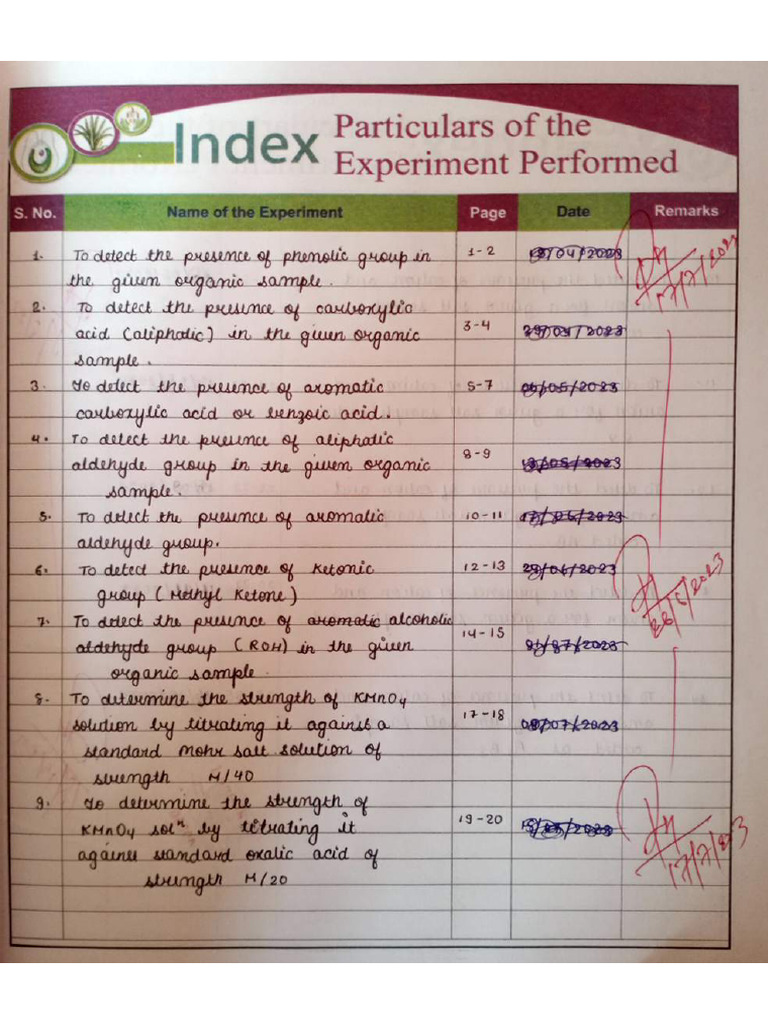 Index Particulars of the
Experiment Performed
S. No. Name of the Experiment Page Date Remarks
1. To detect the presence of phenolic group in 1-2 /04/2023
the given organic sample.
2. To detect the presence of carboxylic
acid (aliphatic) in the given organic 3-4 29/04/2023
sample.
3. To detect the presence of aromatic 5-7 /05/2023
carboxylic acid or benzoic acid.
4. To detect the presence of aliphatic
aldehyde group in the given organic 8-9 /05/2023
sample.
5. To detect the presence of aromatic 10-11 /2023
aldehyde group.
6. To detect the presence of ketonic 12-13 /2023
group (Methyl Ketone)
7. To detect the presence of aromatic alcoholic
aldehyde group (ROH) in the given 14-15 /2023
organic sample.
8. To determine the strength of KMnO4
solution by titrating it against a 17-18 /07/2023
standard Mohr salt solution of
strength M/40
9. To determine the strength of
KMnO4 solⁿ by titrating it 19-20
against standard oxalic acid of
strength M/20
17/7/2023
26/5/2023
17/7/2023